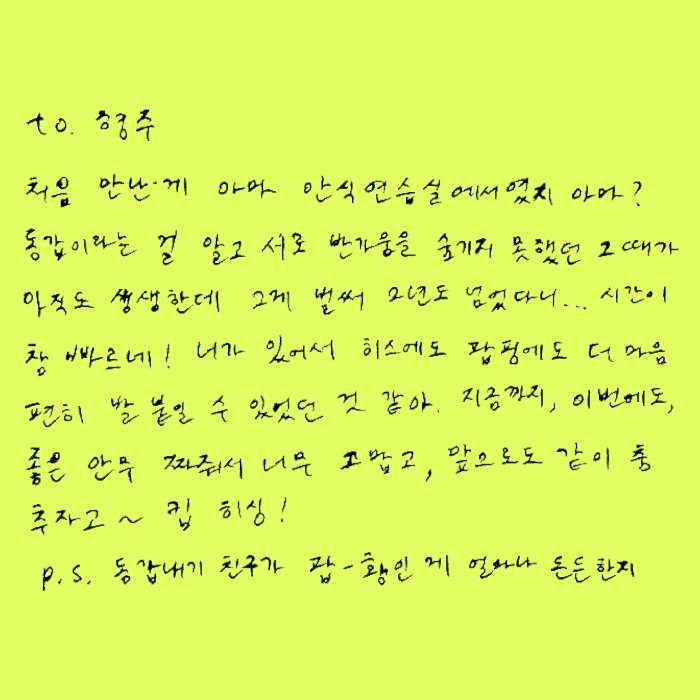 to. 형주
처음 만난·게 아마 안식연습실에서였지 아마?
동갑이라는 걸 알고 서로 반가움을 숨기지 못했던 그때가
아직도 생생한데 그게 벌써 2년도 넘었다니... 시간이
참 빠르네! 너가 있어서 히스에도 팝핑에도 더 마음
편히 발 붙일 수 있었던 것 같아. 지금까지, 이번에도,
좋은 안무 짜줘서 너무 고맙고, 앞으로도 같이 춤
추자고~ 킵 히싱!
p.s. 동갑내기 친구가 팝-황인 게 얼마나 든든한지